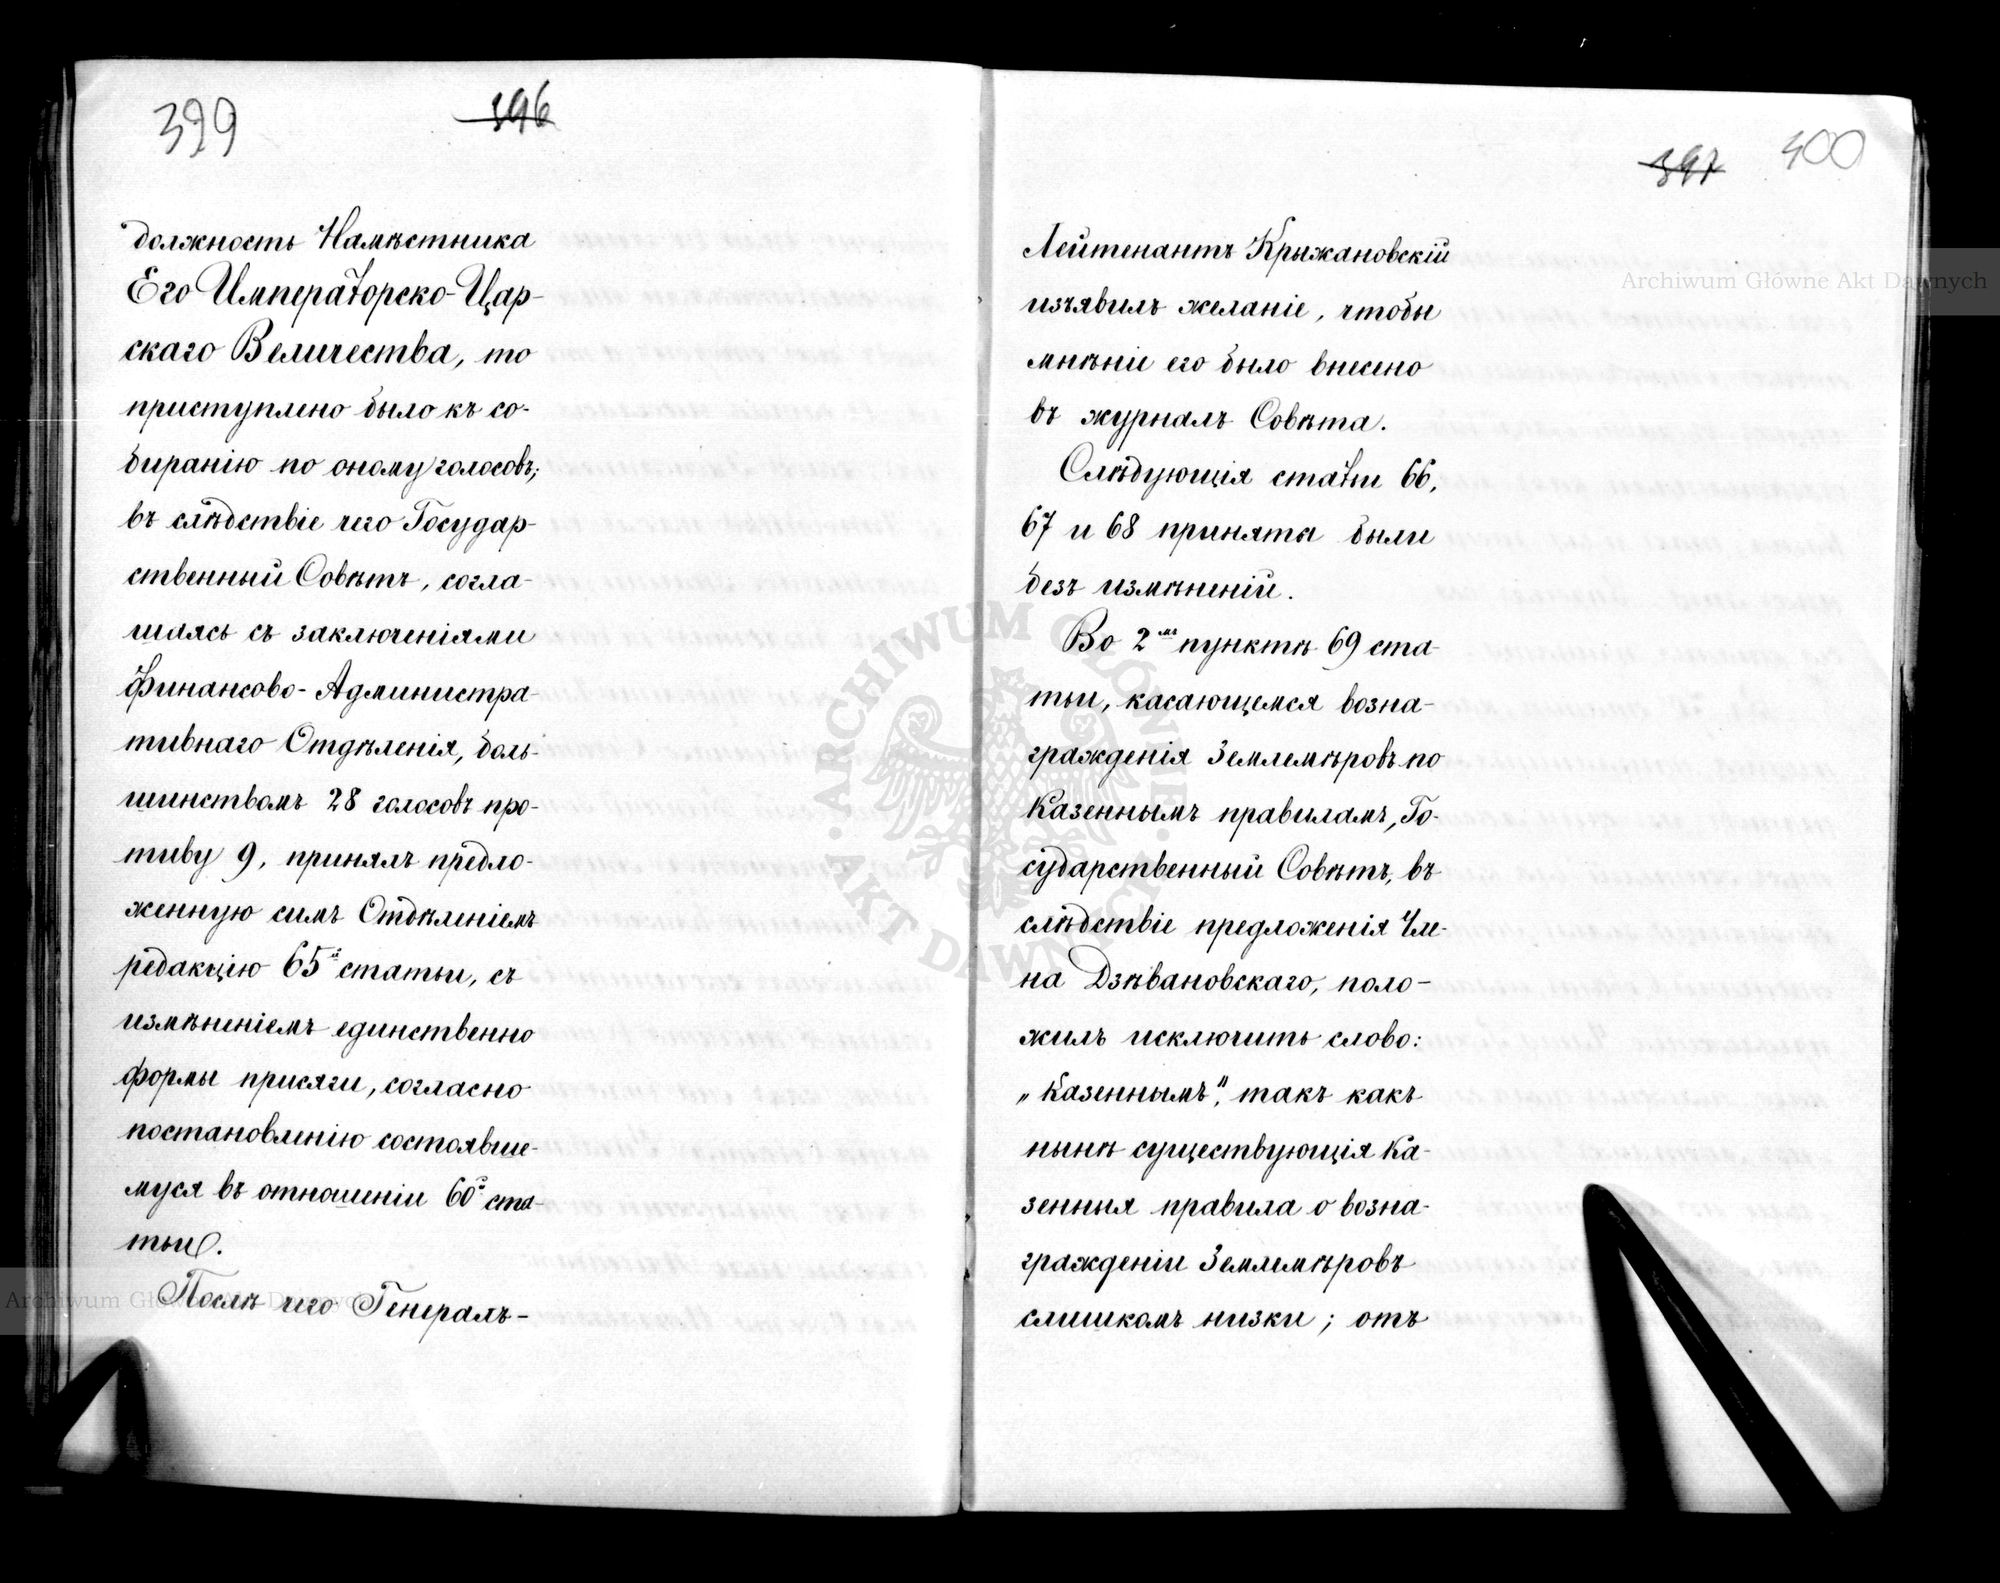 399 396
должность Намѣстника
Его Императорско-Цар-
скаго Величества, то
приступлено было къ со-
биранію по оному голосовъ;
въ слѣдствіе чего Государ-
ственный Совѣтъ, согла-
шаясь съ заключеніями
Финансово-Администра-
тивнаго Отдѣленія, боль-
шинствомъ 28 голосовъ про-
тиву 9, принялъ предло-
женную симъ Отдѣленіемъ
редакцію 65й статьи, съ
измѣненіемъ единственно
формы присяги, согласно
постановленію состоявше-
муся въ отношеніи 60й ста-
тьи.
Послѣ чего Генералъ-
397 400
Лейтенантъ Крыжановскій
изъявилъ желаніе, чтобы
мнѣніе его было внесено
въ журналъ Совѣта.
Слѣдующія статьи 66,
67 и 68 приняты были
безъ измѣненій.
Во 2мъ пунктѣ 69 ста-
тьи, касающемся возна-
гражденія Землемѣровъ по
Казеннымъ правиламъ, Го-
сударственный Совѣтъ, въ
слѣдствіе предложенія Чле-
на Дзѣвановскаго, поло-
жилъ исключить слово:
„Казеннымъ", такъ какъ
нынѣ существующія Ка-
зенныя правила о возна-
гражденіи Землемѣровъ
слишкомъ низки; отъ
Archiwum Główne Akt Dawnych
Archiwum Główne Akt Dawnych
ARCHIWUM GŁÓWNE AKT DAWNYCH